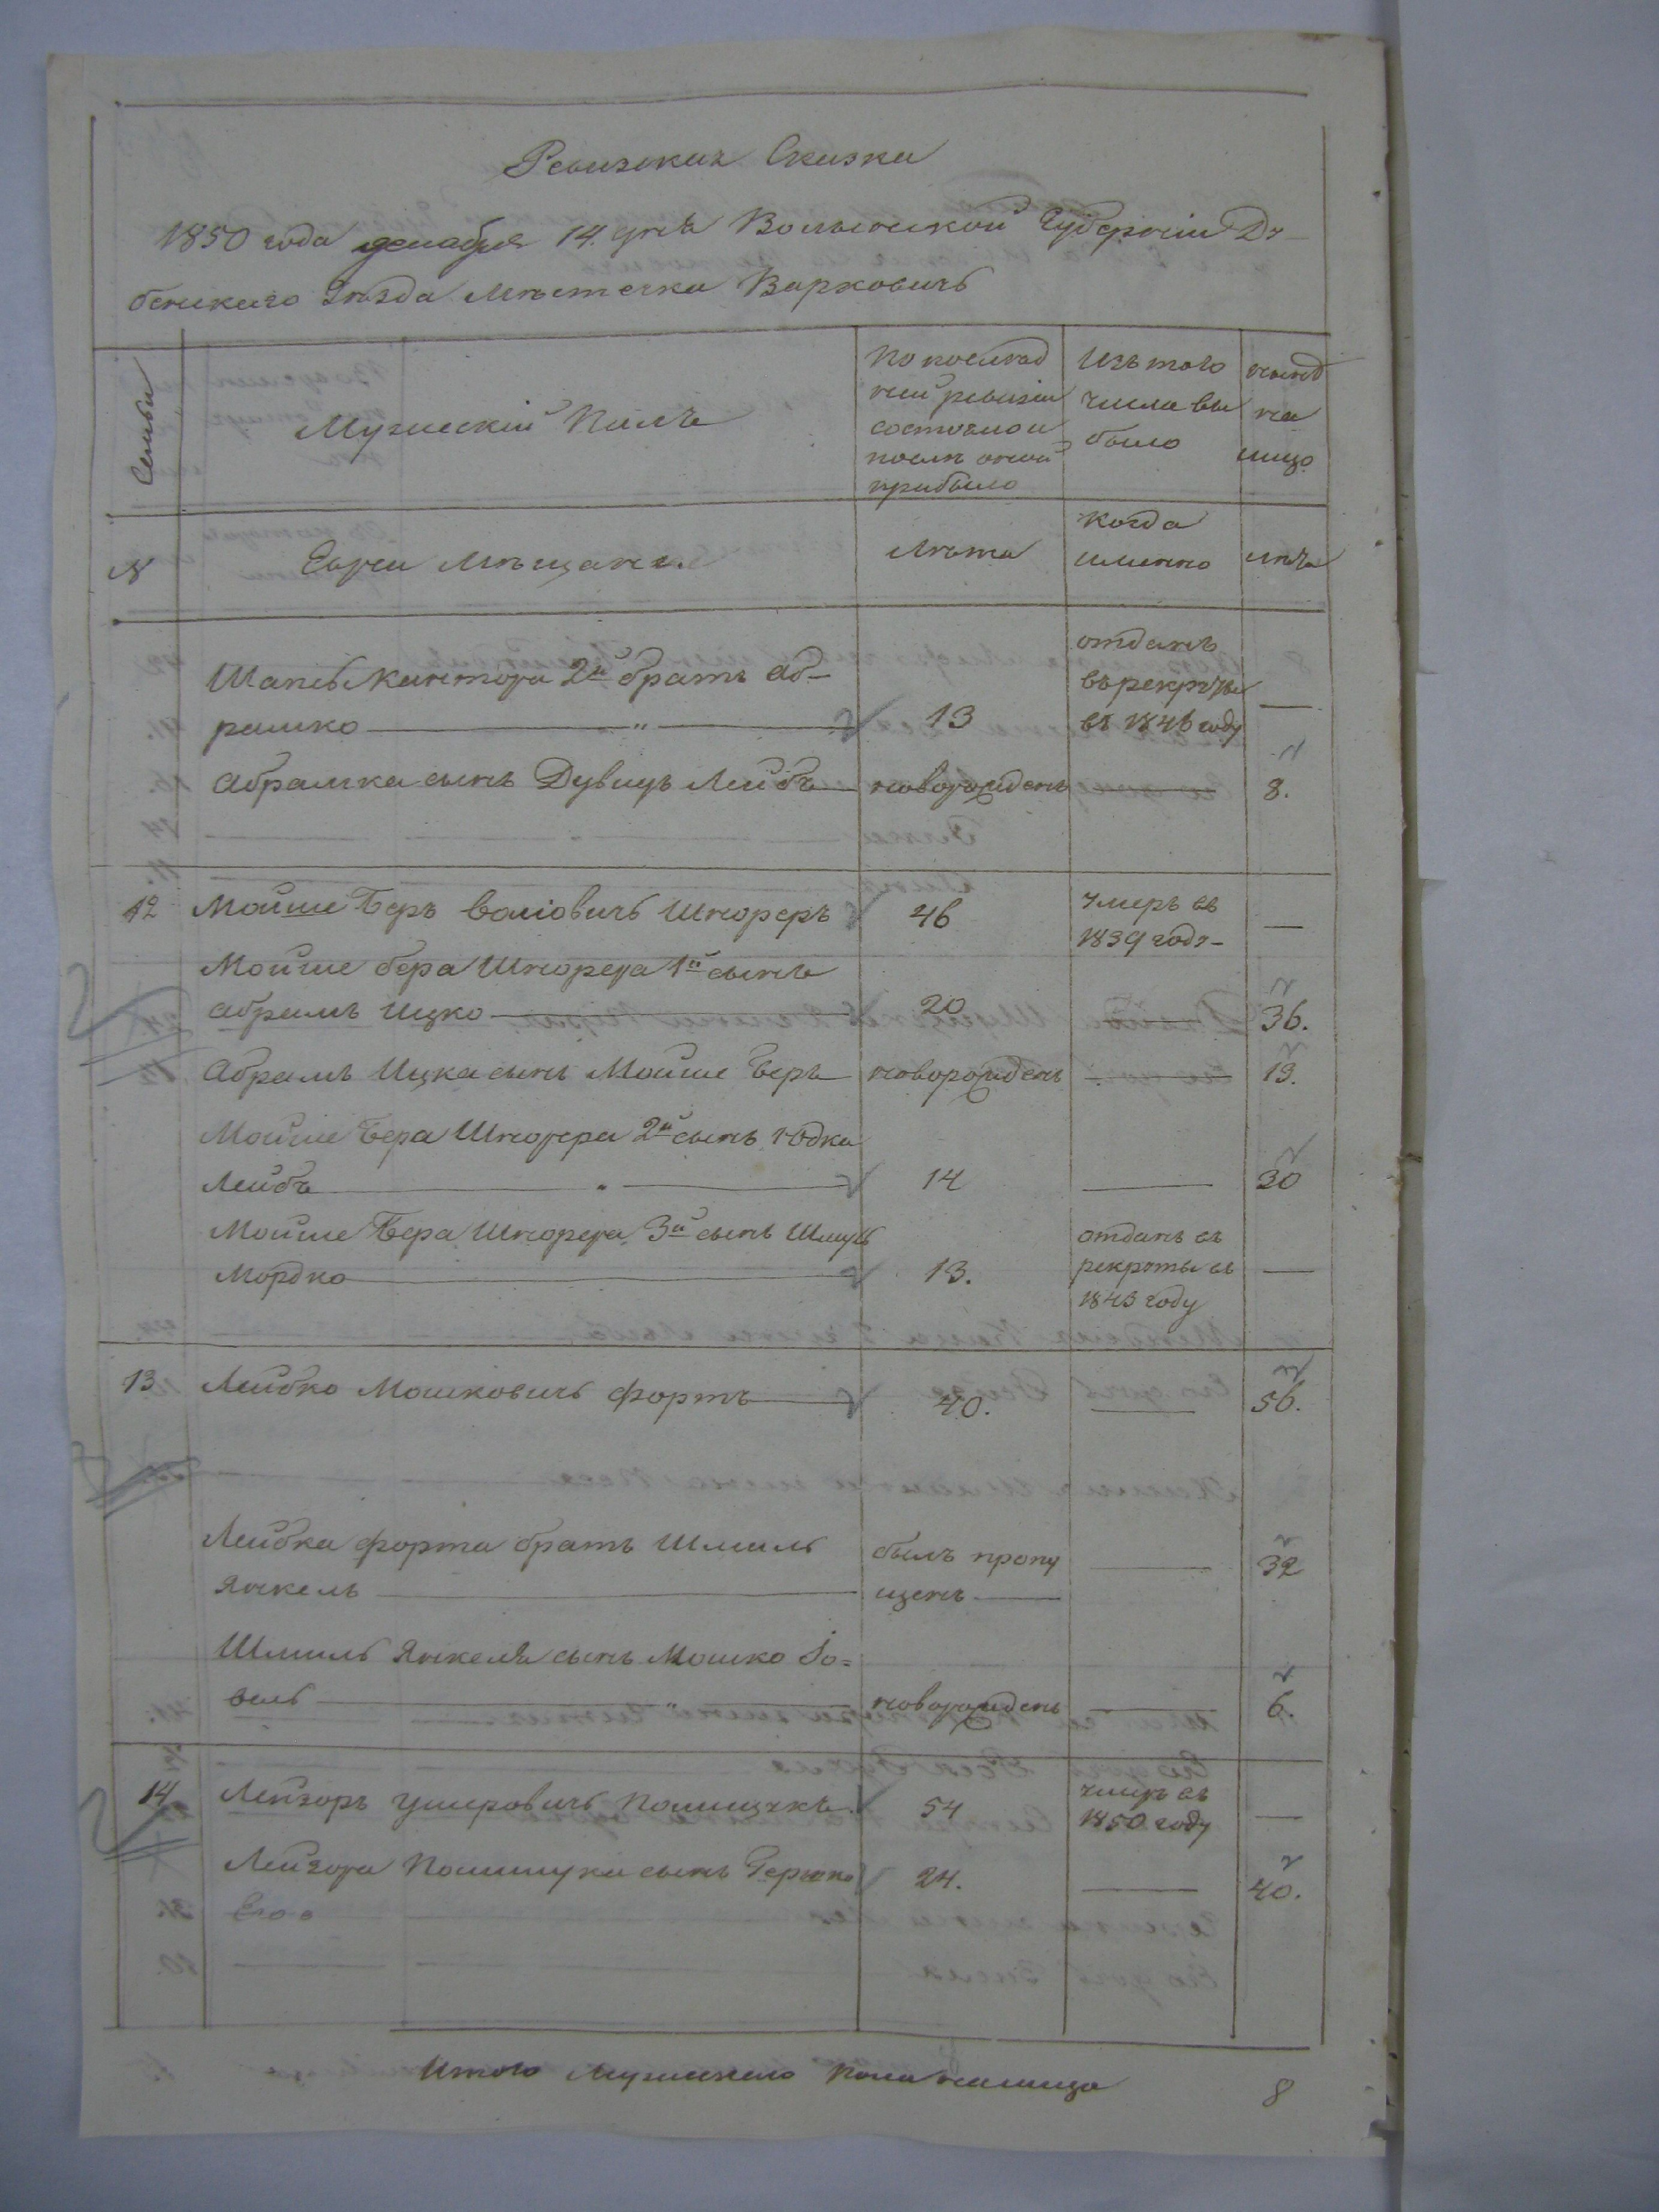 Ревизская Сказка
1850 года декабря 14. дня Волынской Губерніи Ду-
бенскаго Уѣзда Мѣстечка Варковичъ
Семьи
Мужескій Полъ
По послѣд
ней ревизіи
состояло и
послѣ оной
прибыло
Изъ того
числа вы
было
нынѣ
на
лицо
№
Евреи Мѣщане.
Лѣта
когда
именно
лѣта
Шапсы Кантора 2й братъ Аб-
рамко 13
отданъ
въ рекруты
въ 1846 году
Абрамка сынъ Дувицъ Лейбъ новорожденъ 8.
12 Мойше Беръ Воліовичъ Шнореръ 46 умеръ въ
1839 году
Мойше Бера Шнорера 1й сынъ
Абрамъ Ицко 20 36.
Абрамъ Ицка сынъ Мойше Беръ новорожденъ 13.
Мойше Бера Шнорера 2й сынъ Юдка
Лейбъ " 14 30
Мойше Бера Шнорера 3й сынъ Шмуль
Мордко 13.
отданъ въ
рекруты въ
1843 году
13 Лейбко Мошковичъ Фортъ 40. 56.
Лейбка Форта братъ Шмиль
Янкель
былъ пропу
щенъ 32
Шмиль Янкеля сынъ Мошко Іо-
вель " новорожденъ 6.
14 Лейзоръ Умеровичъ Полищукъ 54 умеръ въ
1850 году
Лейзора Полищука сынъ Гершко 24. 40.
Итого Мужескаго пола налицо 8